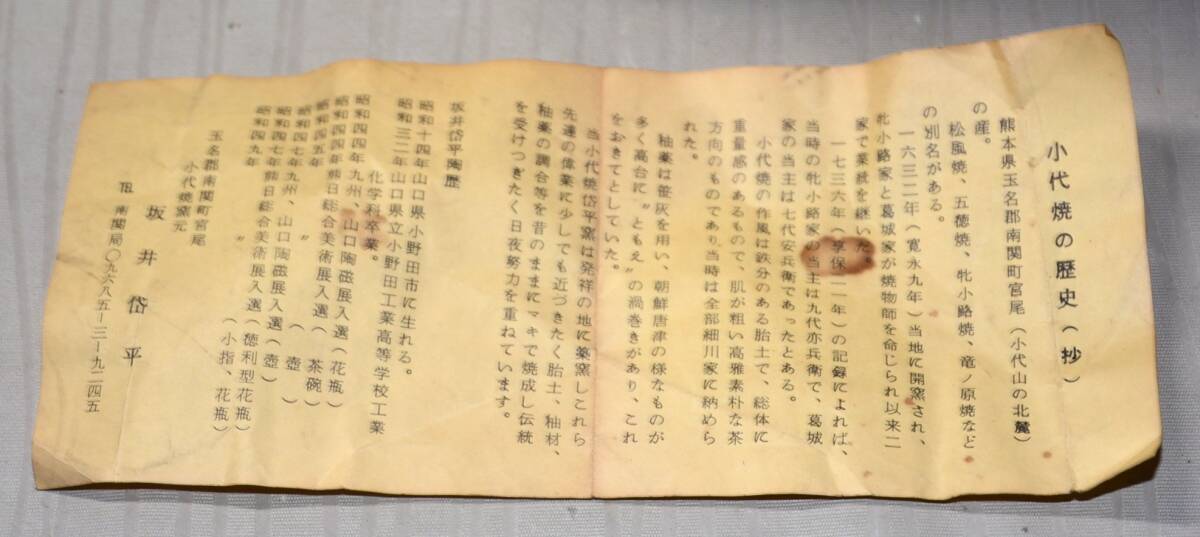 小代焼の歴史(抄)
熊本県玉名郡南関町宮尾(小代山の北麓)
の産。
松風焼、五徳焼、牝小路焼、竜ノ原焼など
の別名がある。
一六三二年(寛永九年)当地に開窯され、
牝小路家と葛城家が焼物師を命じられ以来二
家で業統を継いだ。
一七三六年(享保二一年)の記録によれば、
当時の牝小路家の当主は九代亦兵衛で、葛城
家の当主は七代安兵衛であったとある。
小代焼の作風は鉄分のある胎土で、総体に
重量感のあるもので、肌が粗い高雅素朴な茶
方向のものであり、当時は全部細川家に納めら
れた。
釉薬は笹灰を用い、朝鮮唐津の様なものが
多く高台に〝ともえ〟の渦巻きがあり、これ
をおきてとしていた。
当小代焼岱平窯は発祥の地に築窯しこれら
先達の偉業に少しでも近づきたく胎土、釉材、
釉薬の調合等を昔のままにマキで焼成し伝統
を受けつぎたく日夜努力を重ねています。
坂井岱平陶歴
昭和十四年山口県小野田市に生れる。
昭和三二年山口県立小野田工業高等学校工業
化学科卒業。
昭和四四年九州、山口陶磁展入選(花瓶)
昭和四四年熊日総合美術展入選(花瓶)
昭和四五年 〃 (茶碗)
昭和四七年九州、山口陶磁展入選(壺)
昭和四七年熊日総合美術展入選(壺)
昭和四九年 〃 (徳利型花瓶)
(小指、花瓶)
玉名郡南関町宮尾
小代焼窯元
坂井岱平
℡ 南関局〇九六八五―三―九二四五